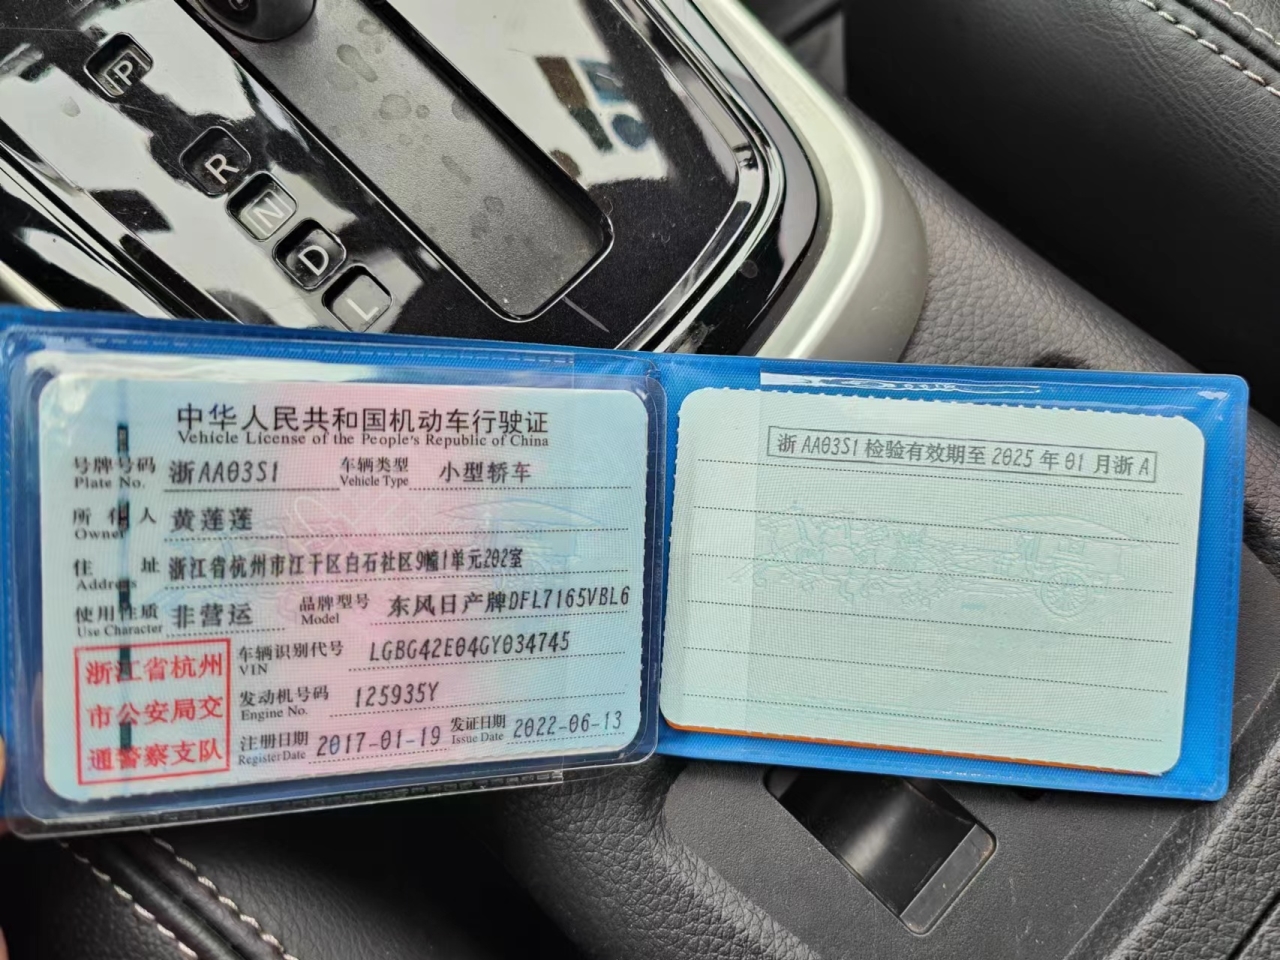 P
R
N
D
L
中华人民共和国机动车行驶证
Vehicle License of the People's Republic of China
号牌号码 浙AA03S1 车辆类型 小型轿车
Plate No. Vehicle Type
所有人 黄莲莲
Owner
住址 浙江省杭州市江干区白石社区9幢1单元202室
Address
使用性质 非营运 品牌型号 东风日产牌DFL7165VBL6
Use Character Model
浙江省杭州
市公安局交
通警察支队
车辆识别代号 LGBG42E04GY034745
VIN
发动机号码 125935Y
Engine No.
注册日期 2017-01-19 发证日期 2022-06-13
Register Date Issue Date
浙AA03S1检验有效期至2025年01月浙A